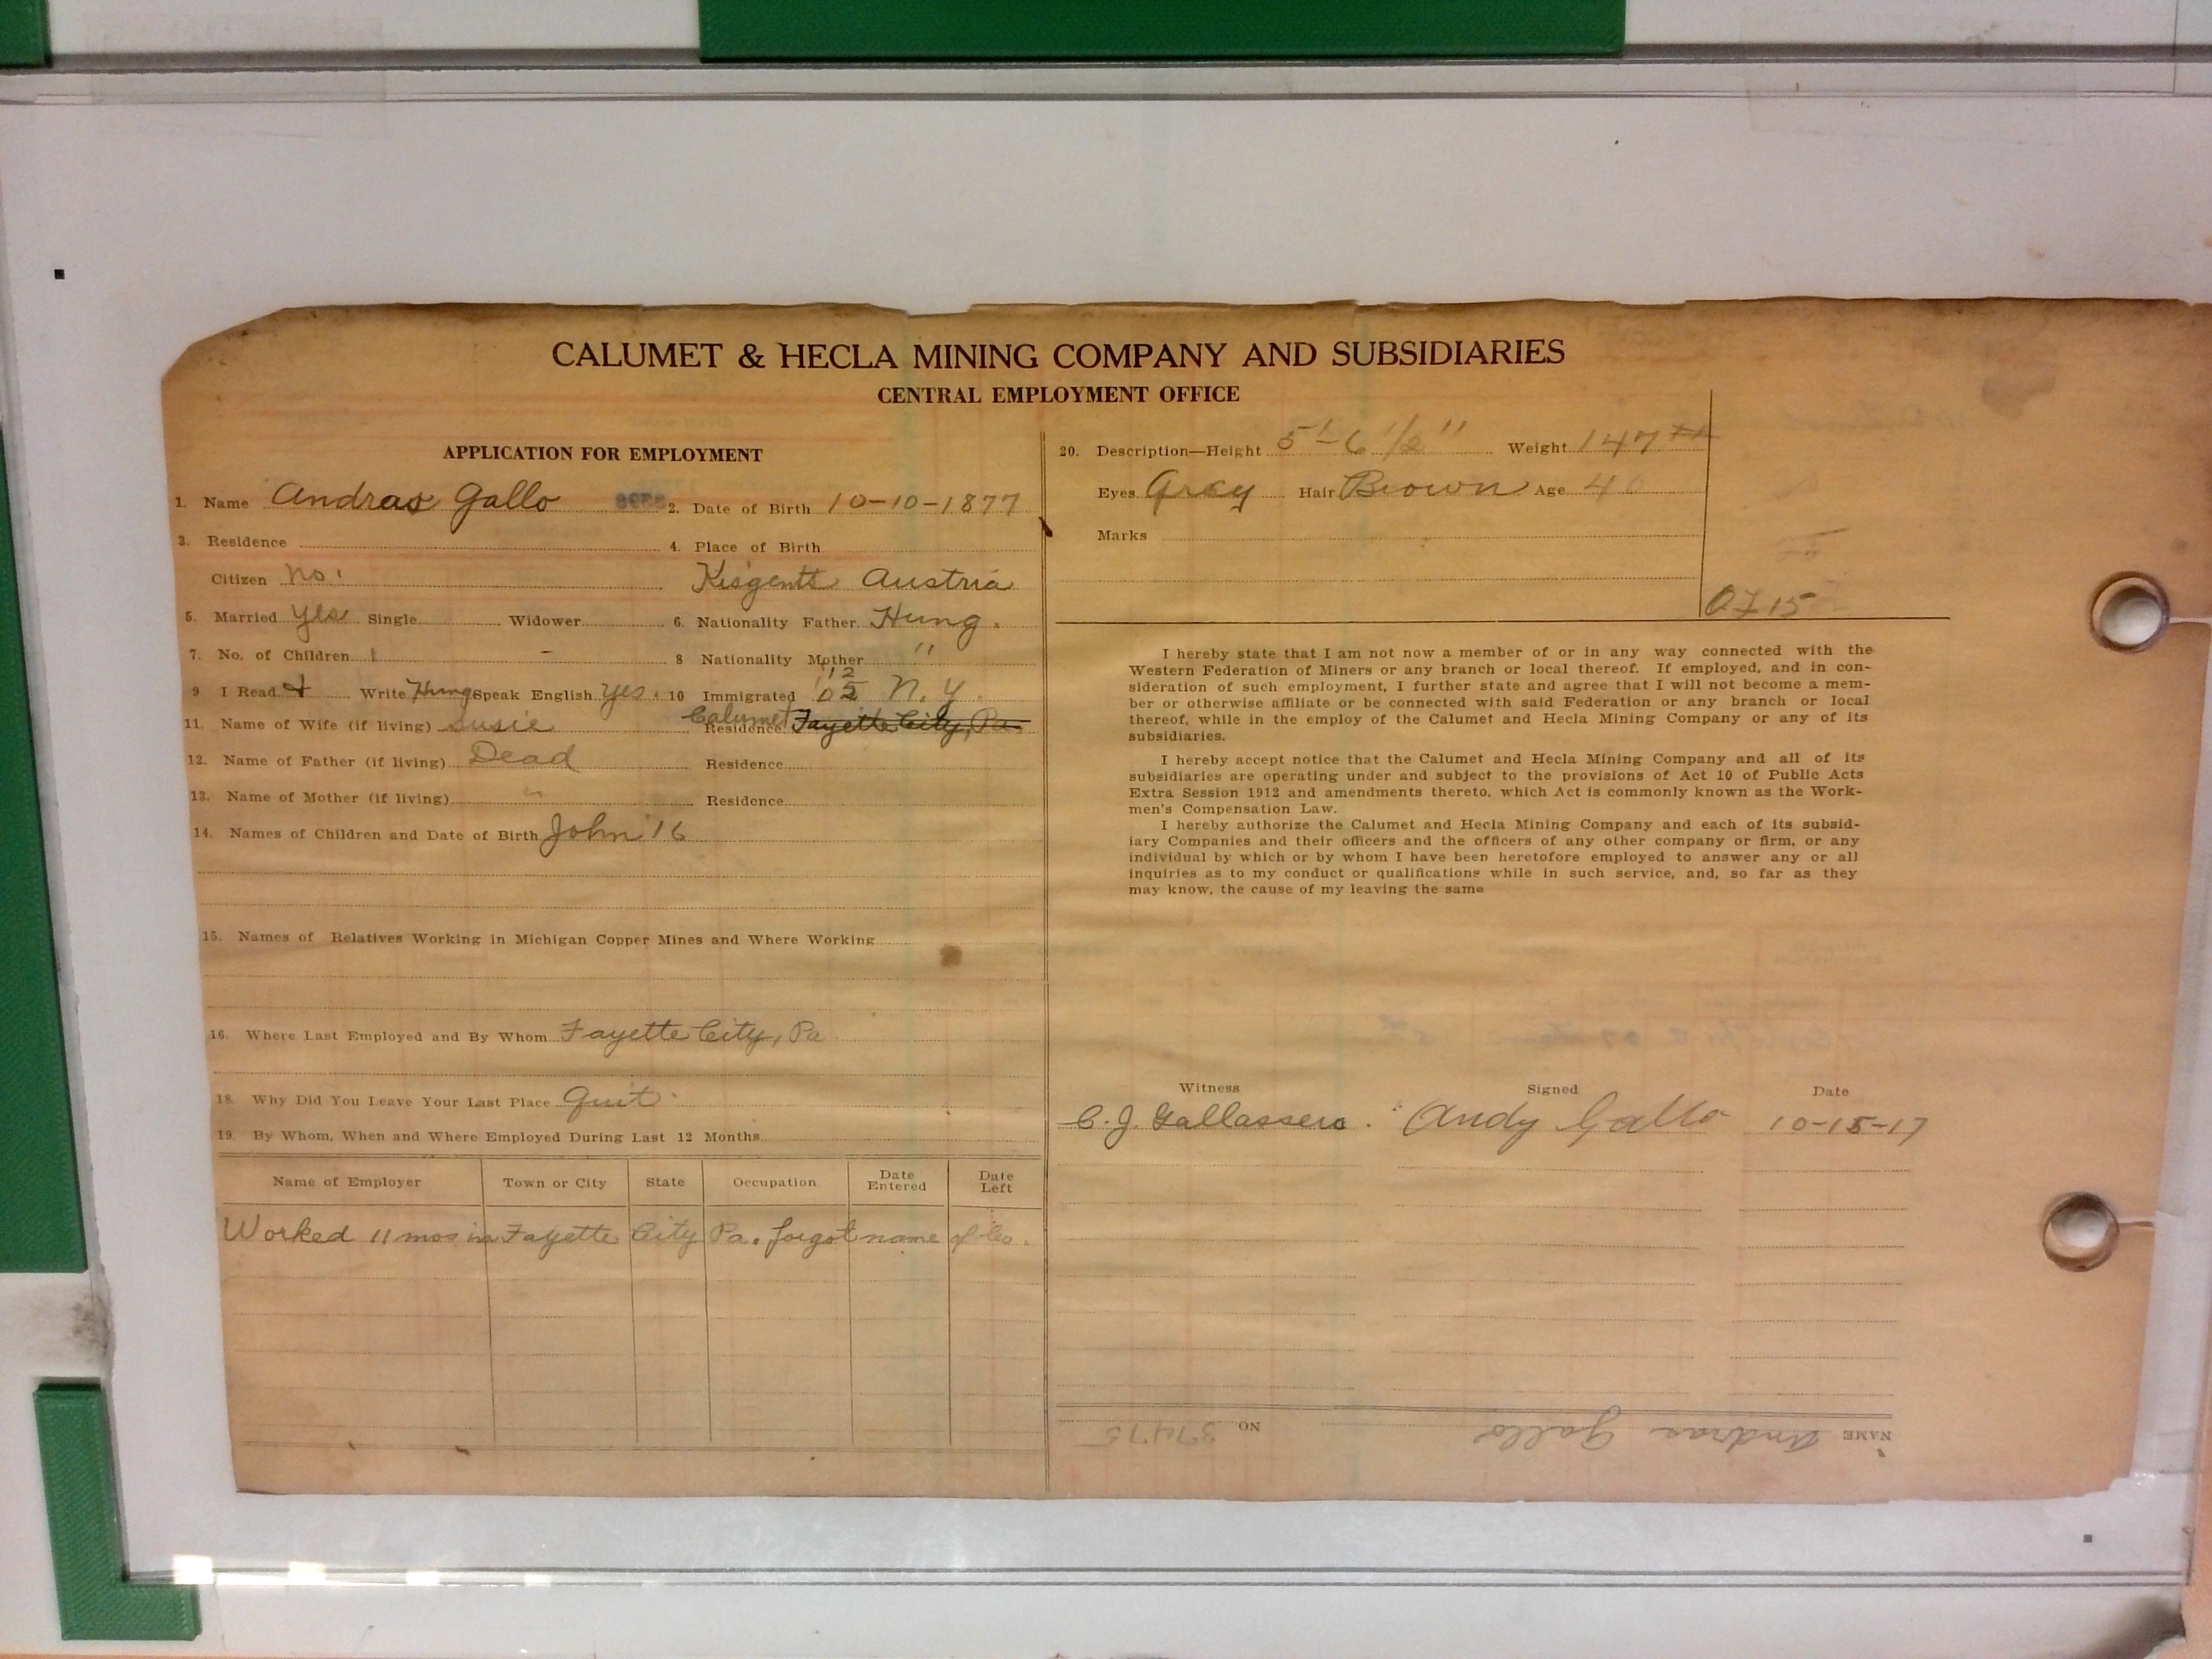 CALUMET & HECLA MINING COMPANY AND SUBSIDIARIES
CENTRAL EMPLOYMENT OFFICE
APPLICATION FOR EMPLOYMENT
1. Name Andras Gallo 2. Date of Birth 10-10-1877
3. Residence 4. Place of Birth
Citizen No. Austria
5. Married Yes Single Widower 6. Nationality Father Hung.
7. No. of Children 1 - 8 Nationality Mother "
9 I Read & Write Hung Speak English Yes. 10 Immigrated '12 N.Y.
11. Name of Wife (if living) Susie Residence Calumet Fayette City, Pa
12. Name of Father (if living) Dead Residence
13. Name of Mother (if living) " Residence
14. Names of Children and Date of Birth John '16
15. Names of Relatives Working in Michigan Copper Mines and Where Working
16. Where Last Employed and By Whom Fayette City, Pa
18. Why Did You Leave Your Last Place Quit.
19. By Whom, When and Where Employed During Last 12 Months
Name of Employer Town or City State Occupation Date Entered Date Left
Worked 11 mos in Fayette City Pa. forgot name of Co.
20. Description—Height 5'-6 1/2" Weight 147 #
Eyes Grey Hair Brown Age 40
Marks
I hereby state that I am not now a member of or in any way connected with the
Western Federation of Miners or any branch or local thereof. If employed, and in con-
sideration of such employment, I further state and agree that I will not become a mem-
ber or otherwise affiliate or be connected with said Federation or any branch or local
thereof, while in the employ of the Calumet and Hecla Mining Company or any of its
subsidiaries.
I hereby accept notice that the Calumet and Hecla Mining Company and all of its
subsidiaries are operating under and subject to the provisions of Act 10 of Public Acts
Extra Session 1912 and amendments thereto, which Act is commonly known as the Work-
men's Compensation Law.
I hereby authorize the Calumet and Hecla Mining Company and each of its subsid-
iary Companies and their officers and the officers of any other company or firm, or any
individual by which or by whom I have been heretofore employed to answer any or all
inquiries as to my conduct or qualifications while in such service, and, so far as they
may know, the cause of my leaving the same
Witness Signed Date
C. J. Gallassero. Andy Gallo 10-15-17
NAME Andras Gallo NO 37475